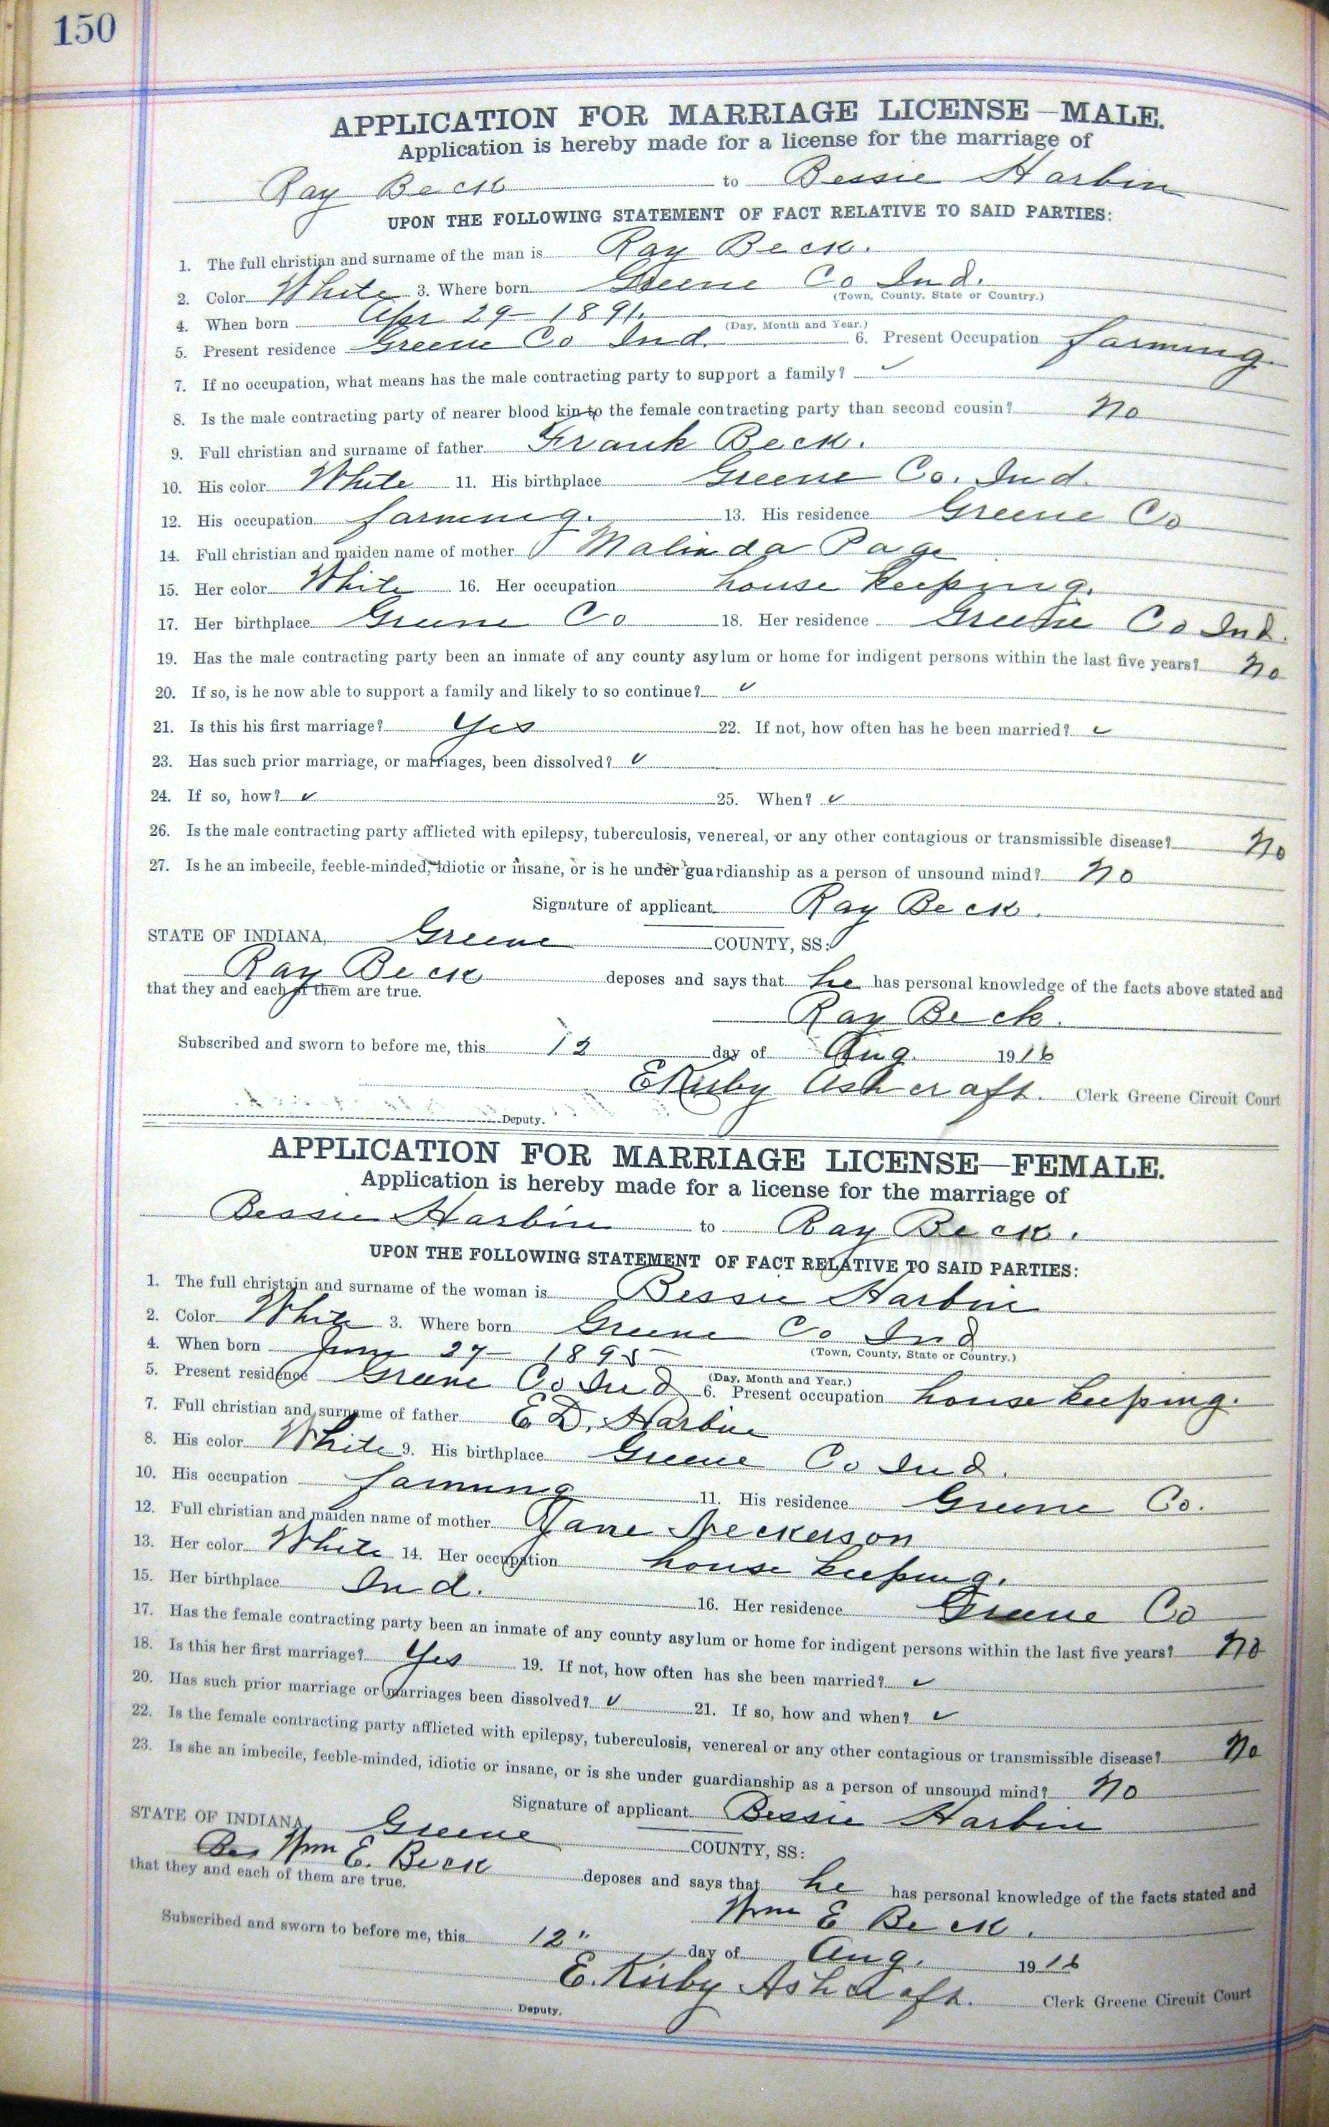 150
APPLICATION FOR MARRIAGE LICENSE—MALE.
Application is hereby made for a license for the marriage of
Ray Beck to Bessie Harbin
UPON THE FOLLOWING STATEMENT OF FACT RELATIVE TO SAID PARTIES:
1. The full christian and surname of the man is Ray Beck.
2. Color White 3. Where born Greene Co Ind.
(Town, County, State or Country.)
4. When born Apr 29 - 1891.
(Day, Month and Year.)
5. Present residence Greene Co Ind. 6. Present Occupation farming.
7. If no occupation, what means has the male contracting party to support a family? ✓
8. Is the male contracting party of nearer blood kin to the female contracting party than second cousin? No
9. Full christian and surname of father Frank Beck.
10. His color White 11. His birthplace Greene Co. Ind.
12. His occupation farming. 13. His residence Greene Co
14. Full christian and maiden name of mother Malinda Page
15. Her color White 16. Her occupation house keeping.
17. Her birthplace Greene Co 18. Her residence Greene Co Ind.
19. Has the male contracting party been an inmate of any county asylum or home for indigent persons within the last five years? No
20. If so, is he now able to support a family and likely to so continue? ✓
21. Is this his first marriage? Yes 22. If not, how often has he been married? ✓
23. Has such prior marriage, or marriages, been dissolved? ✓
24. If so, how? ✓ 25. When? ✓
26. Is the male contracting party afflicted with epilepsy, tuberculosis, venereal, or any other contagious or transmissible disease? No
27. Is he an imbecile, feeble-minded, idiotic or insane, or is he under guardianship as a person of unsound mind? No
Signature of applicant Ray Beck.
STATE OF INDIANA, Greene COUNTY, SS:
Ray Beck deposes and says that he has personal knowledge of the facts above stated and
that they and each of them are true.
Ray Beck.
Subscribed and sworn to before me, this 12 day of Aug. 1916
E Kirby Ashcraft. Clerk Greene Circuit Court
Deputy.
APPLICATION FOR MARRIAGE LICENSE—FEMALE.
Application is hereby made for a license for the marriage of
Bessie Harbin to Ray Beck.
UPON THE FOLLOWING STATEMENT OF FACT RELATIVE TO SAID PARTIES:
1. The full christain and surname of the woman is Bessie Harbin
2. Color White 3. Where born Greene Co Ind
(Town, County, State or Country.)
4. When born June 27 - 1895
(Day, Month and Year.)
5. Present residence Greene Co Ind 6. Present occupation house keeping.
7. Full christian and surname of father E D. Harbin
8. His color White 9. His birthplace Greene Co Ind.
10. His occupation farming 11. His residence Greene Co.
12. Full christian and maiden name of mother Jane Neckerson
13. Her color White 14. Her occupation house keeping.
15. Her birthplace Ind. 16. Her residence Greene Co
17. Has the female contracting party been an inmate of any county asylum or home for indigent persons within the last five years? No
18. Is this her first marriage? Yes 19. If not, how often has she been married? ✓
20. Has such prior marriage or marriages been dissolved? ✓ 21. If so, how and when? ✓
22. Is the female contracting party afflicted with epilepsy, tuberculosis, venereal or any other contagious or transmissible disease? No
23. Is she an imbecile, feeble-minded, idiotic or insane, or is she under guardianship as a person of unsound mind? No
Signature of applicant Bessie Harbin
STATE OF INDIANA, Greene COUNTY, SS:
Wm E. Beck deposes and says that he has personal knowledge of the facts stated and
that they and each of them are true.
Wm E Beck.
Subscribed and sworn to before me, this 12" day of Aug. 1916
E. Kirby Ashcraft. Clerk Greene Circuit Court
Deputy.